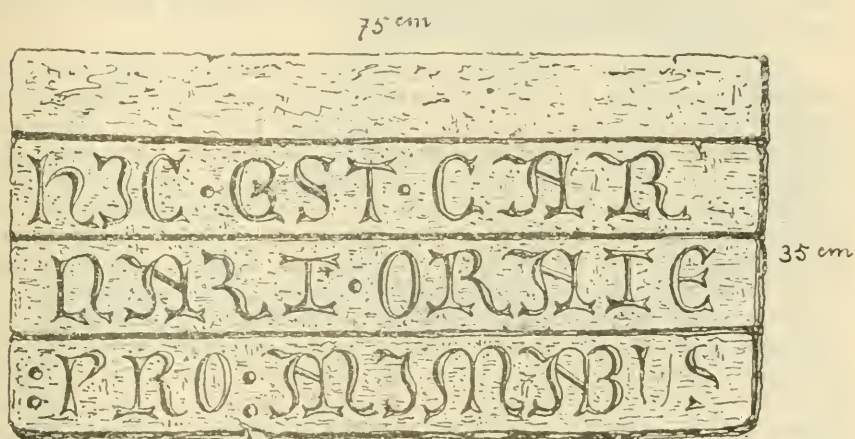 75 cm
HIC · EST · CAR
NARI · ORATE
: PRO : AIMABUS
35 cm